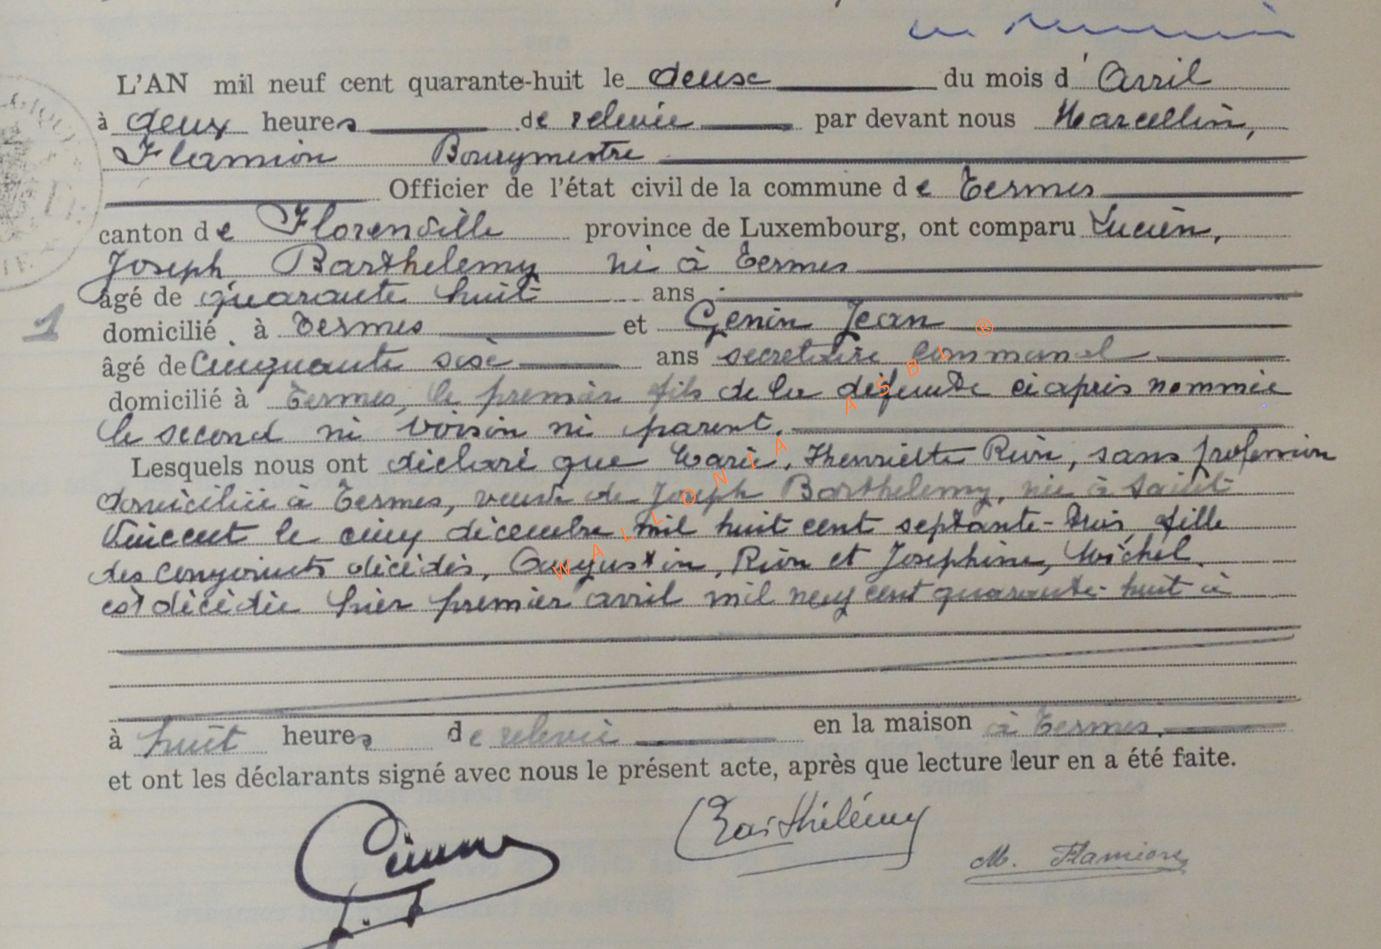 L'AN mil neuf cent quarante-huit le deuse du mois d'Avril
à deux heures de relevée par devant nous Marcellin,
Flamion Bourgmestre
Officier de l'état civil de la commune de Termes
canton de Florenville province de Luxembourg, ont comparu Lucien,
Joseph Barthelemy né à Termes
âgé de quarante huit ans
1
domicilié à Termes et Genin Jean
âgé de Cinquante sise ans secretaire Communal
domicilié à Termes, le premier fils de la défunte ci après nommée
le second ni voisin ni parent.
Lesquels nous ont déclaré que Marie, Henriette Rion, sans profession
domiciliée à Termes, veuve de Joseph Barthelemy, née à Saint
Vincent le cinq décembre mil huit cent septante-trois fille
des conjoints décédés, Augustin, Rion et Josephine, Michel
est décédée hier premier avril mil neuf cent quarante-huit à
à huit heures de relevée en la maison à Termes.
et ont les déclarants signé avec nous le présent acte, après que lecture leur en a été faite.
Barthélémy
M. Flamion
WALLONIA ASBL ®